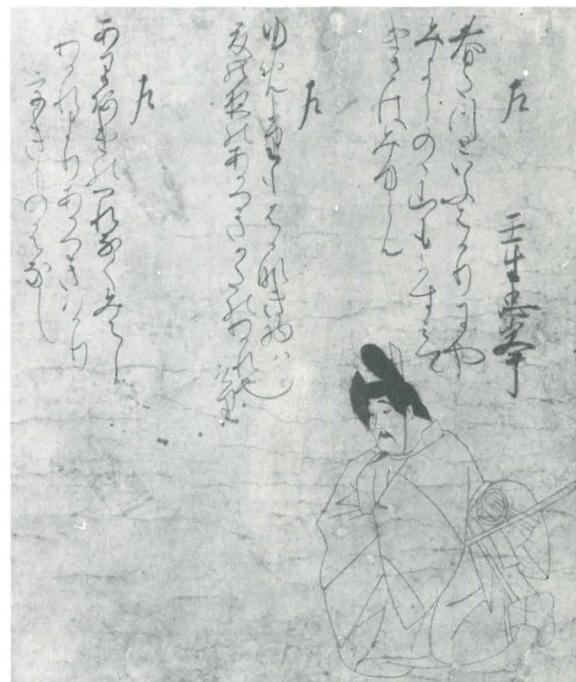 左　壬生忠岑
春たつといふはかりにや
みよしのゝ山もかすみて
けさはみゆらん
左
ゆめよりもはかなき物ハ
夏の夜のあかつきかたのわかれ
なりけり
左
ありあけのつれなくみえし
わかれよりあかつきはかり
うきものはなし